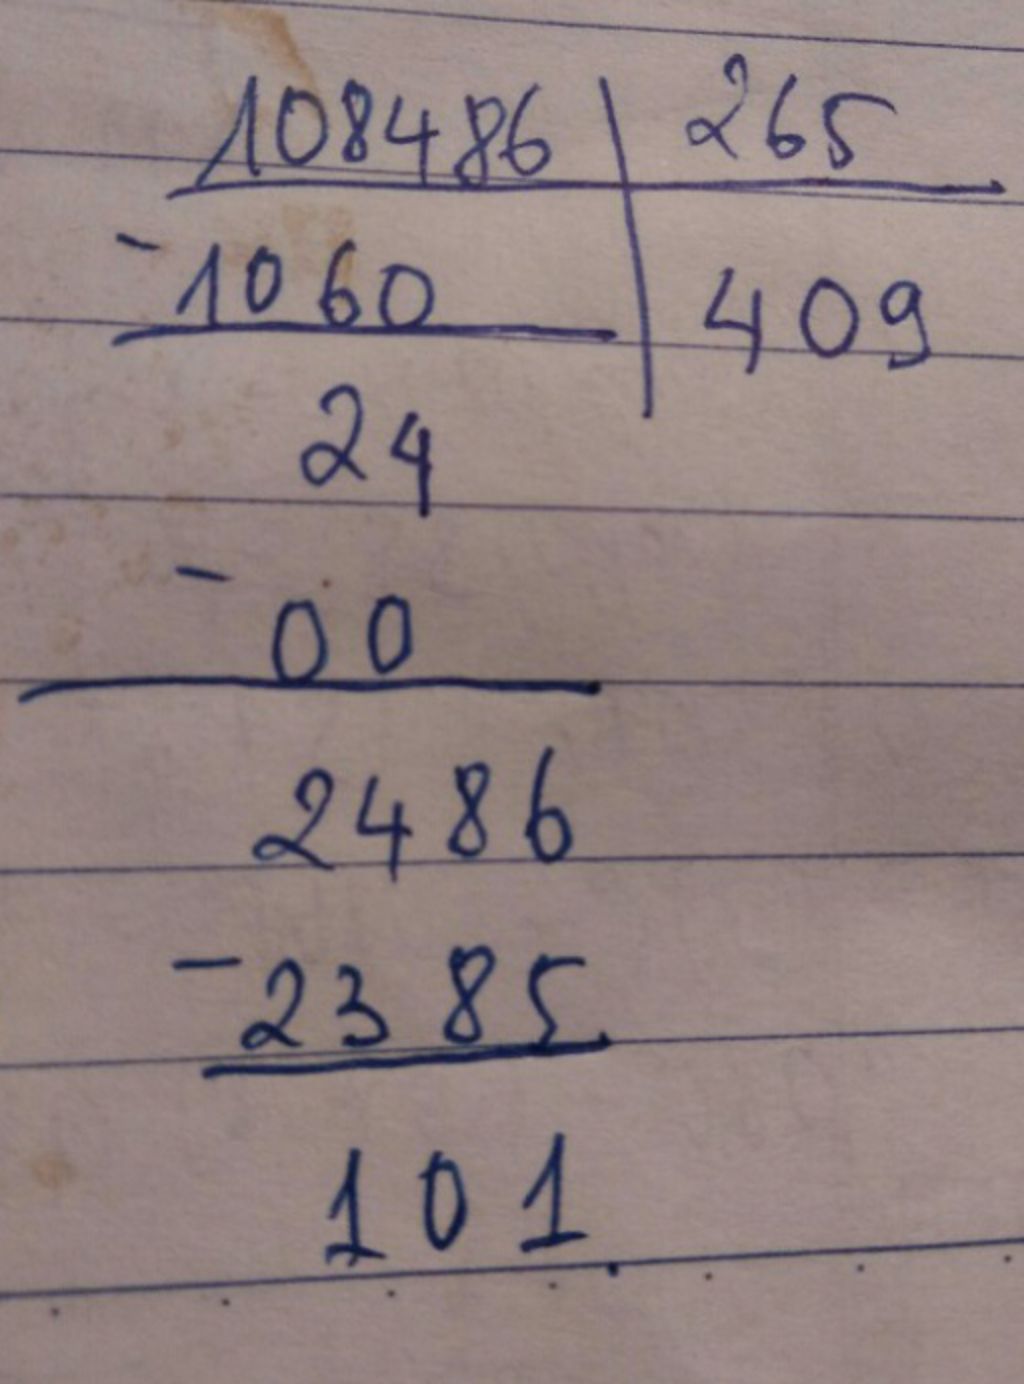 108486 265
-1060 409
24
-00
2486
-2385
101